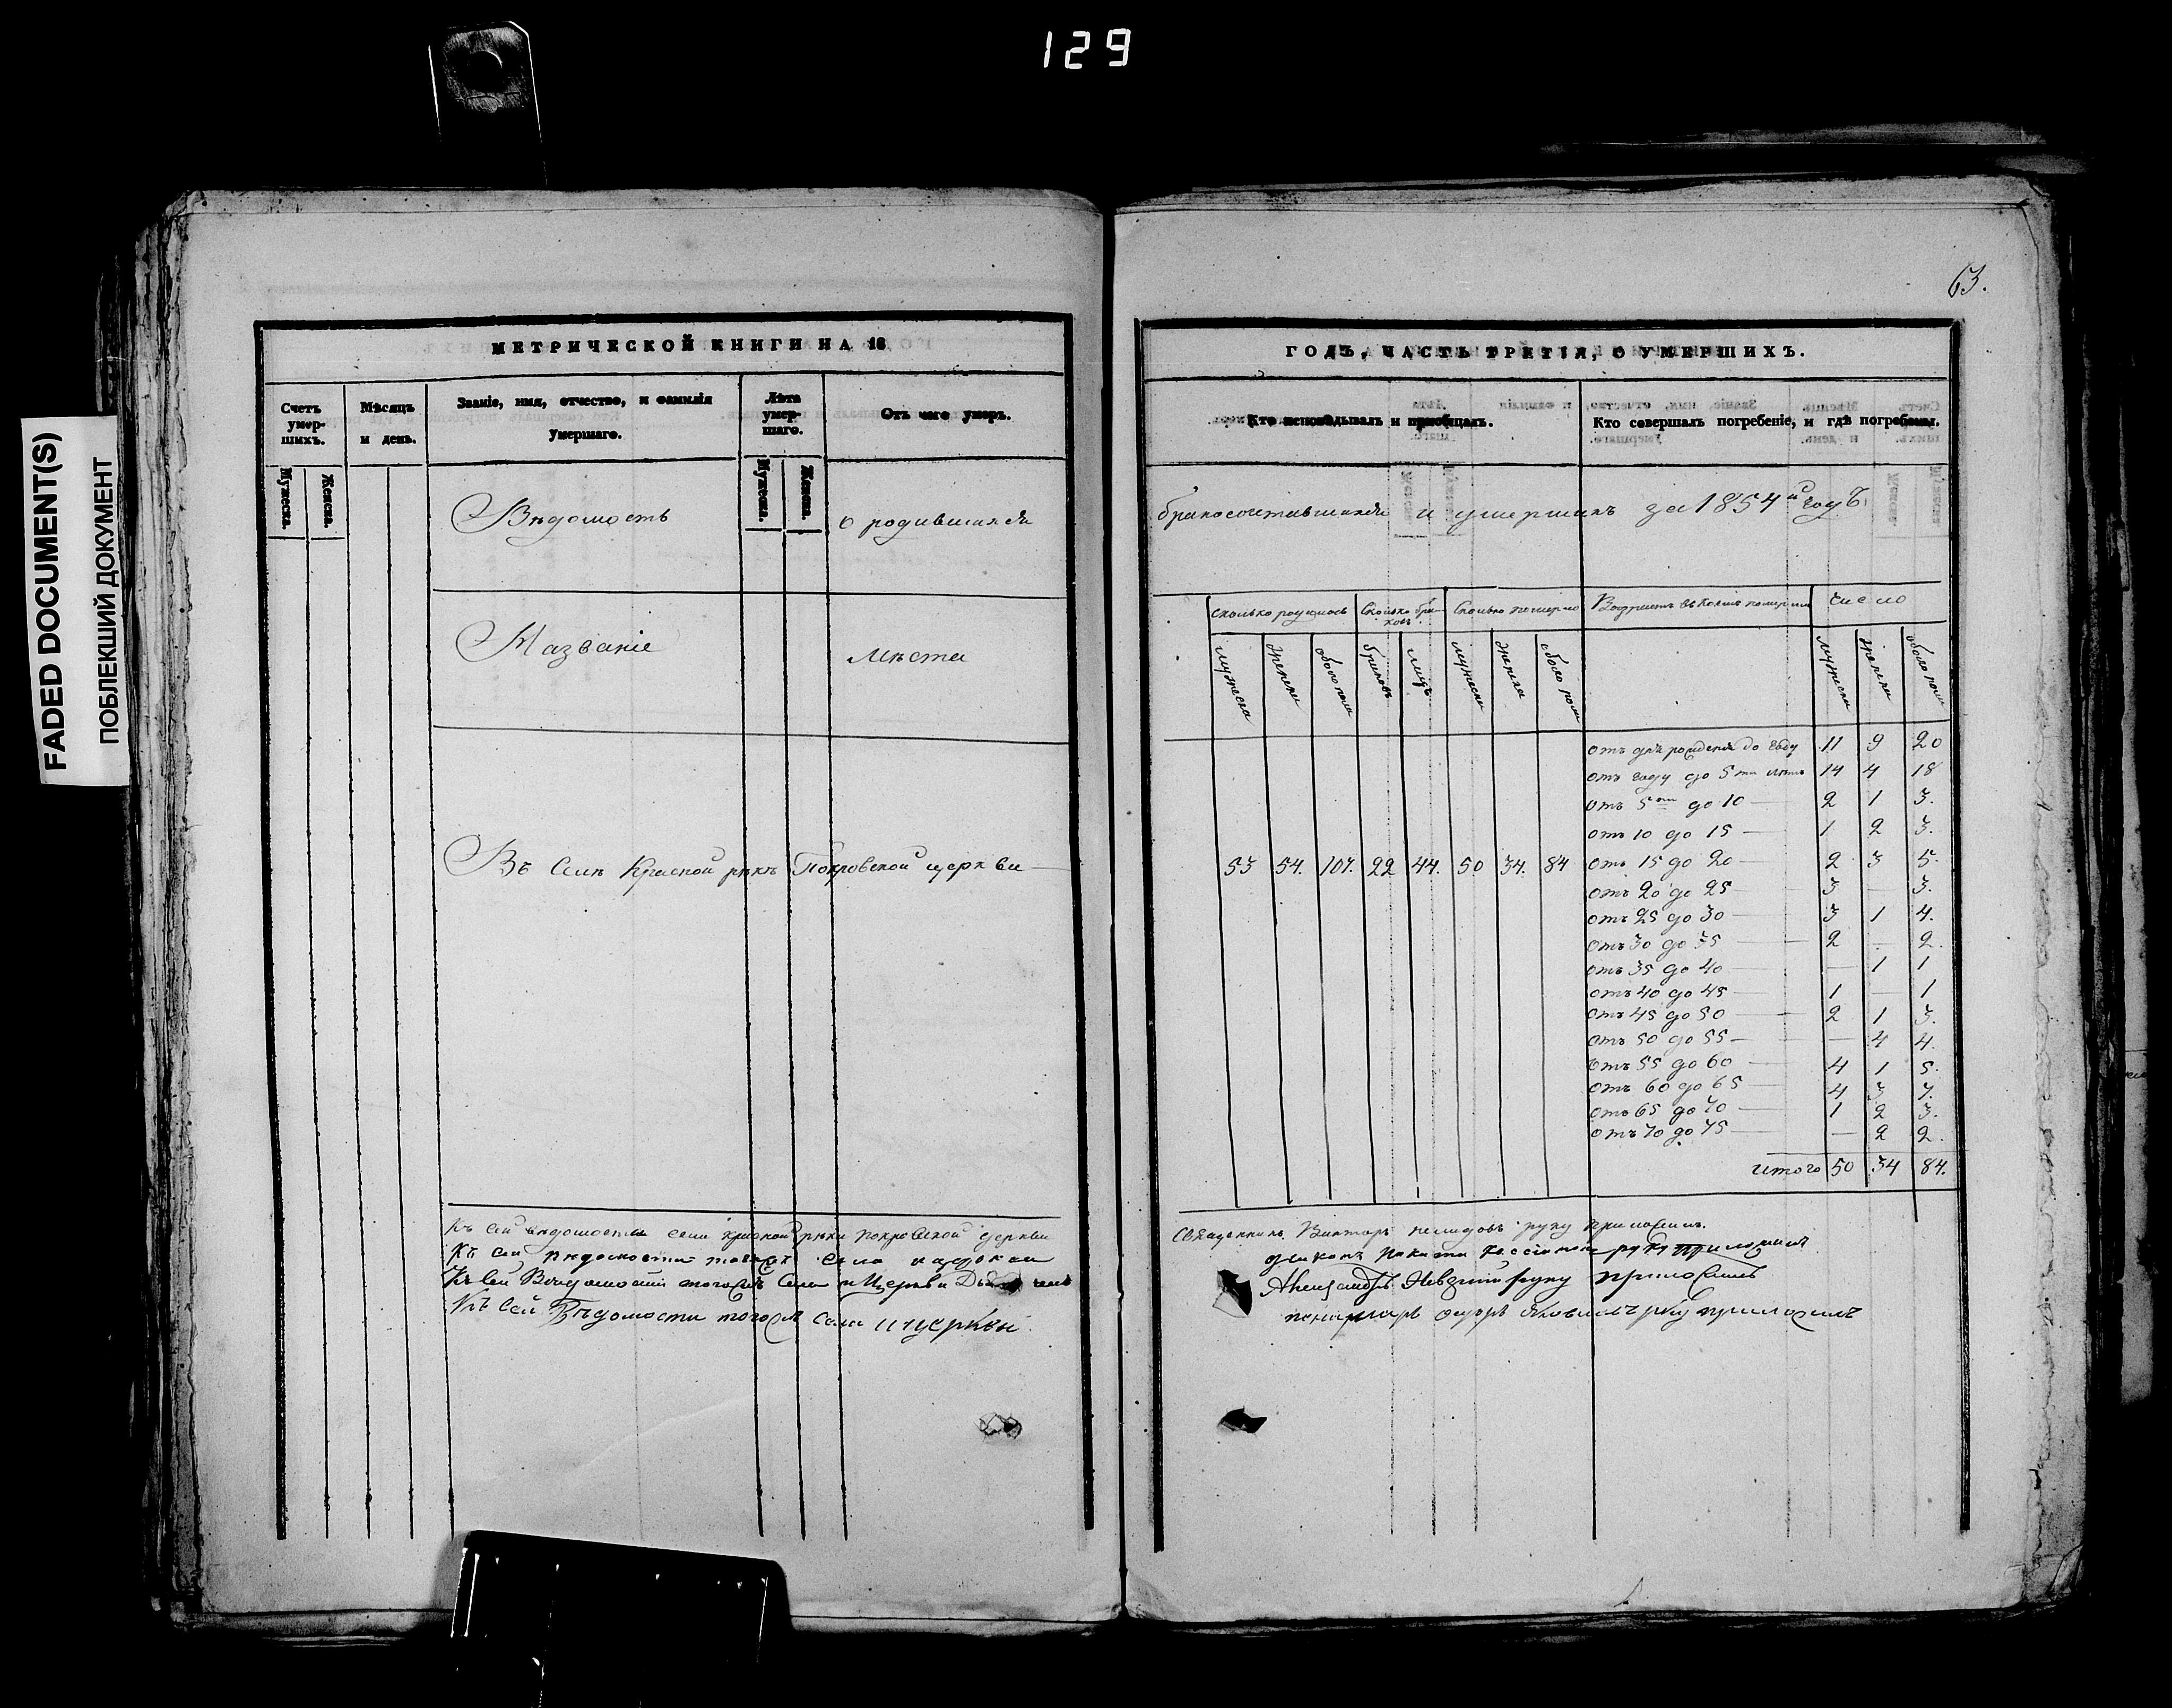 129
FADED DOCUMENT(S)
ПОБЛЕКШИЙ ДОКУМЕНТ
63.
МЕТРИЧЕСКОЙ КНИГИ НА 18
Счетъ умер-шихъ.
Мужеска.
Женска.
Мѣсяцъ и день.
Званіе, имя, отчество, и фамилія умершаго.
Лѣта умер-шаго.
Мужеска.
Женска.
Отъ чего умеръ.
Вѣдомость о родившихся
Названіе мѣста
Въ Селѣ Красной рѣкѣ Покровской церкви
Къ сей вѣдомости села красной рѣки покровской церкви
Къ сей вѣдомости тогожъ села и церкви
Къ сей Вѣдомости тогожъ Села и Церкви
Къ сей Вѣдомости тогожъ села и церкви
ГОДЪ, ЧАСТЬ ТРЕТІЯ, О УМЕРШИХЪ.
Кто исповѣдывалъ и пріобщалъ.
Кто совершалъ погребеніе, и гдѣ погребены.
бракосочетавшихся и умершихъ за 1854й годъ
Сколько родилось
Сколько бра-ковъ
Сколько померло
Возрастъ въ коемъ померли
число
мужеска
женска
обоего пола
браковъ
лицъ
мужеска
женска
обоего пола
мужеска
женска
обоего пола
53 54. 107. 22 44. 50 34. 84
отъ дня рожденія до году 11 9 20
отъ году до 5ти лѣтъ 14 4 18
отъ 5ти до 10 — 2 1 3.
отъ 10 до 15 — 1 2 3.
отъ 15 до 20 — 2 3 5.
отъ 20 до 25 3 — 3.
отъ 25 до 30 — 3 1 4.
отъ 30 до 35 — 2 — 2.
отъ 35 до 40 — — 1 1
отъ 40 до 45 — 1 — 1
отъ 45 до 50 — 2 1 3.
отъ 50 до 55 — — 4 4.
отъ 55 до 60 — 4 1 5.
отъ 60 до 65 — 4 3 7.
отъ 65 до 70 — 1 2 3.
отъ 70 до 75 — — 2 2.
итого 50 34 84.
Священникъ Викторъ руку приложилъ.
руку приложилъ
Александръ Невзгин руку приложилъ
пономарь руку приложилъ